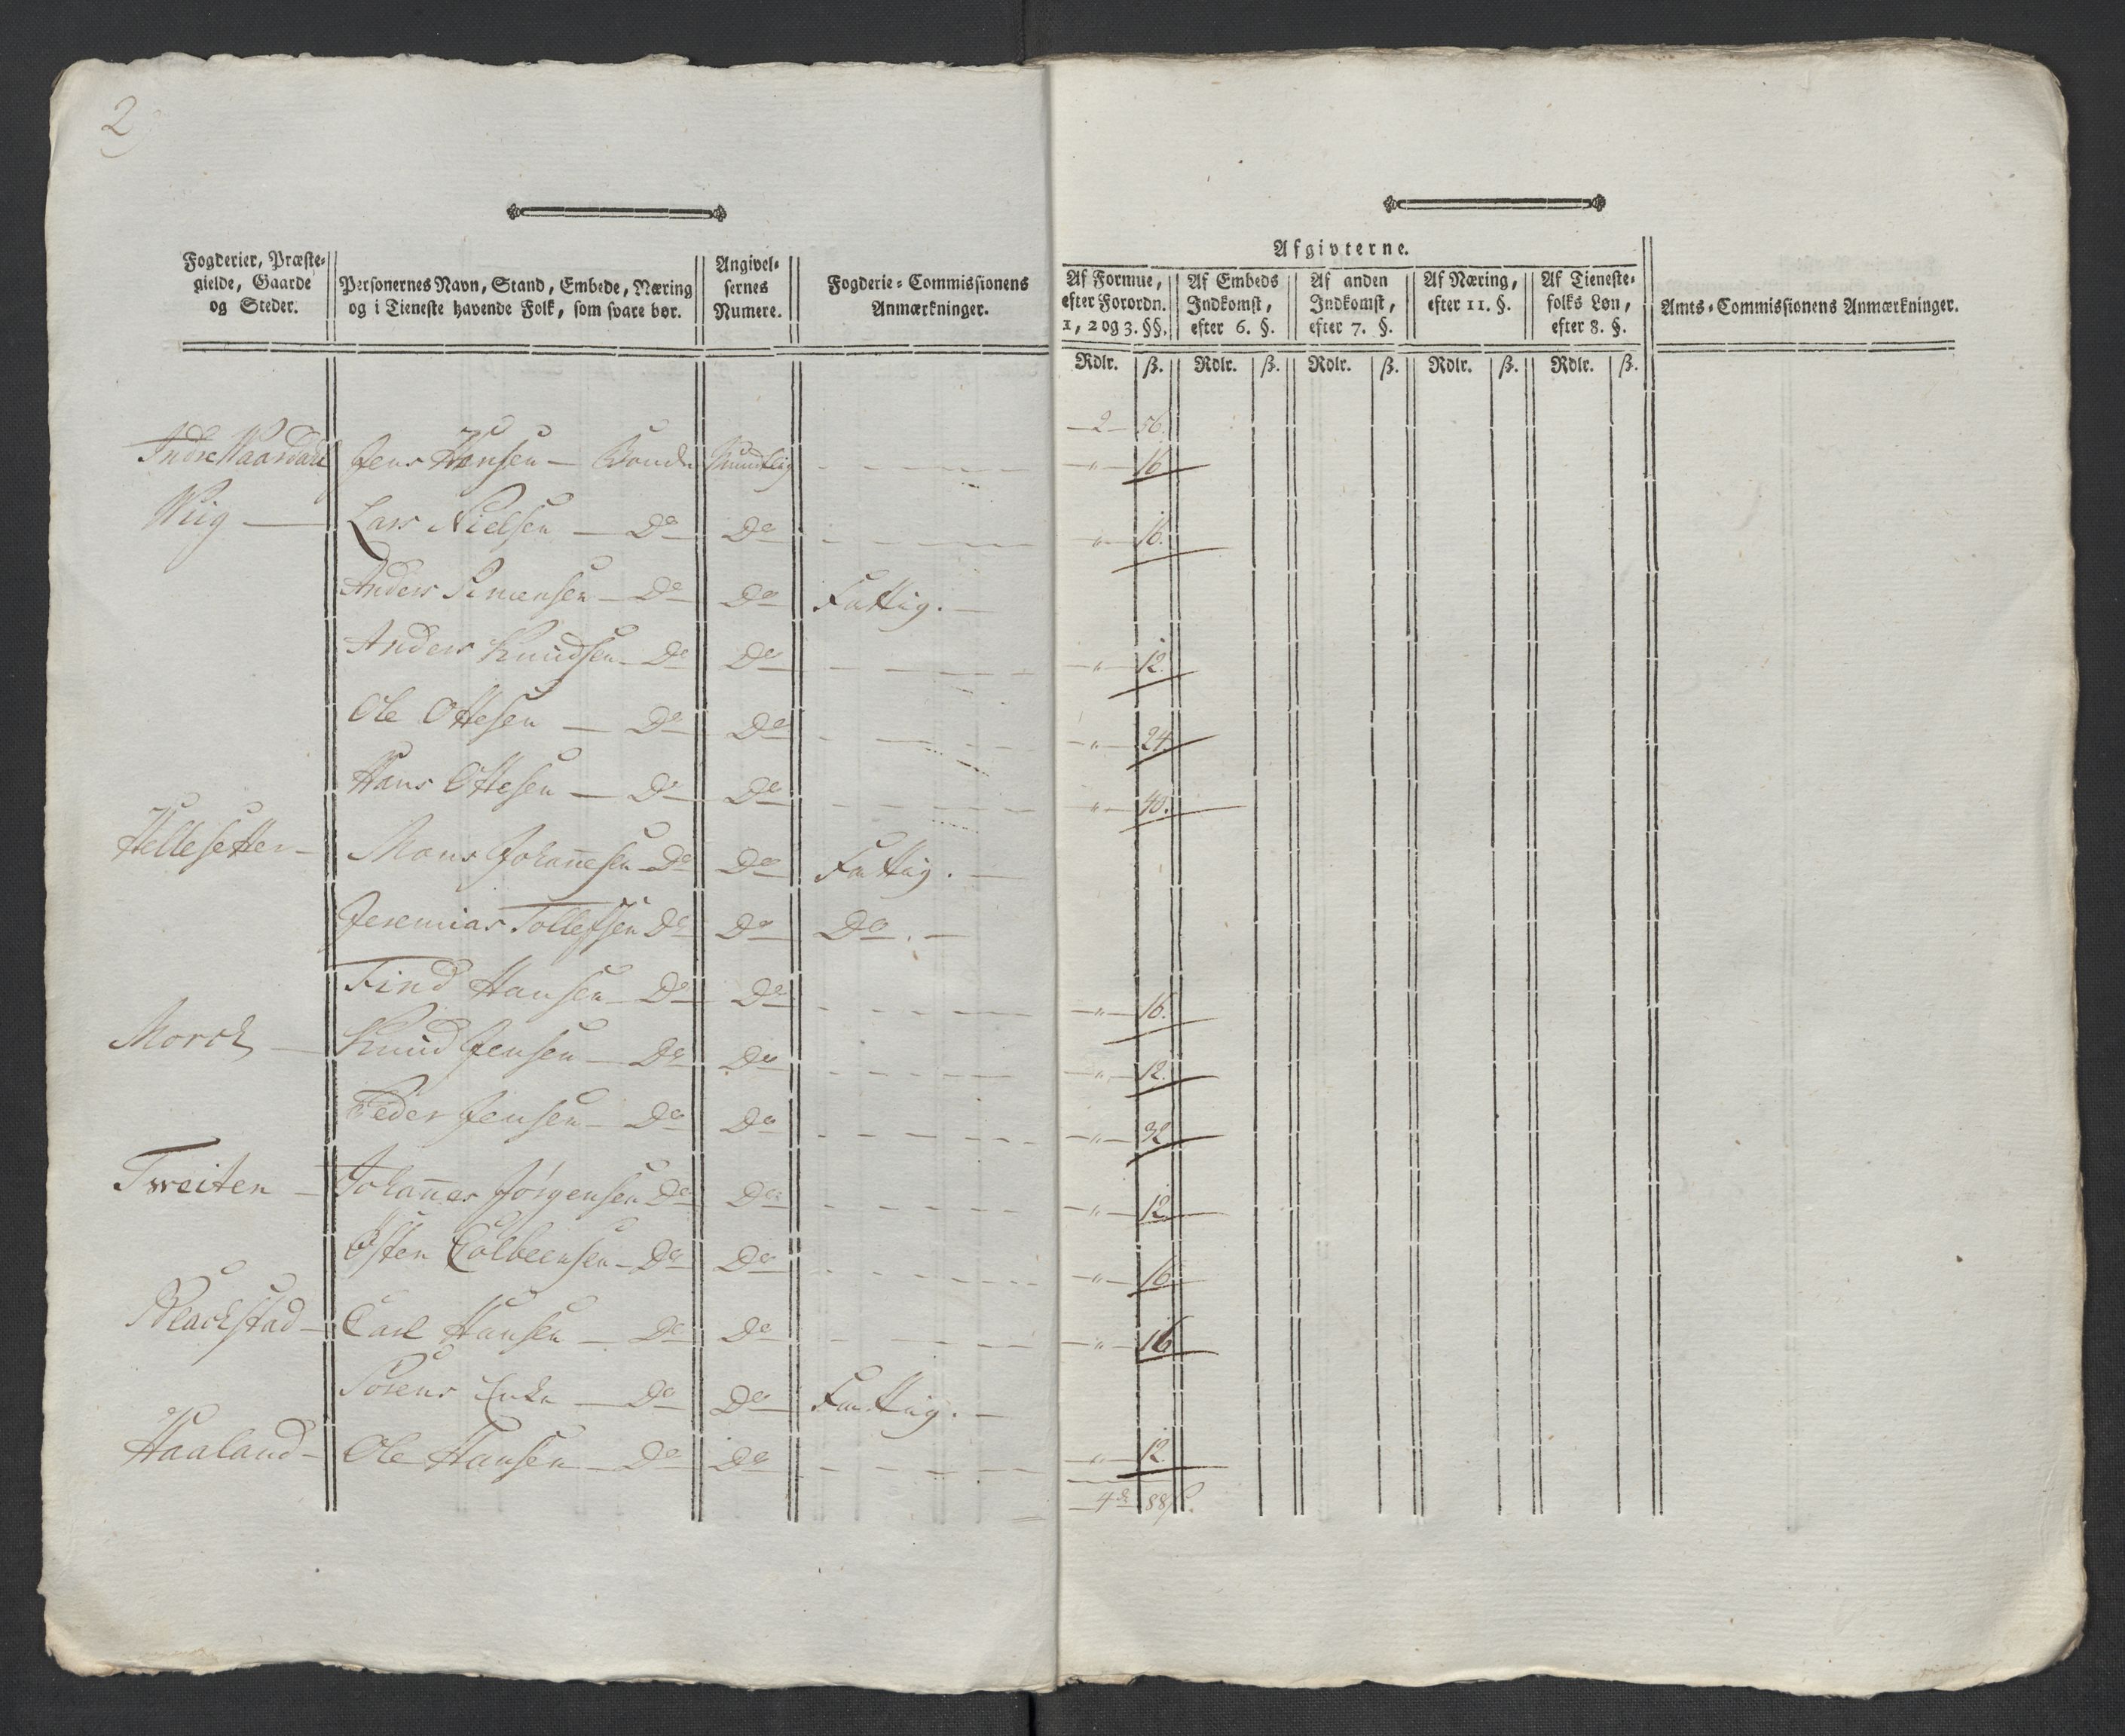 2
Fogderier, Præste-
gielde, Gaarde
og Steder.
Personernes Navn, Stand, Embede, Næring
og i Tieneste havende Folk, som svare bør.
Angivel-
sernes
Numere.
Fogderie-Commissionens
Anmærkninger.
Afgivterne.
Af Formue,
efter Forordn.
1, 2 og 3. §§.
Af Embeds
Indkomst,
efter 6. §.
Af anden
Indkomst,
efter 7. §.
Af Næring,
efter 11. §.
Af Tieneste-
folks Løn,
efter 8. §.
Amts-Commissionens Anmærkninger.
Rdlr. ß. Rdlr. ß. Rdlr. ß. Rdlr. ß. Rdlr. ß.
2 56.
Indre Waardahl Jens Hansen — Bonde Mundtlig — „ — 16
Wiig — Lars Nielsen — Do Do — „ — 16.
Anders Simensen — Do Do Fattig. —
Anders Knudsen — Do Do — „ — 12.
Ole Ottesen — Do Do — „ — 24
Hans Ottesen — Do Do — „ — 40.
Hellesetter — Mons Johanesen Do Do Fattig. —
Jeremias Tollefsen Do Do Do. —
Find Hansen — Do Do — „ — 16.
Morch — Knud Jensen — Do Do — „ — 12.
Peder Jensen — Do Do — „ — 32
Tweiten — Johanes Jørgensen Do Do — „ — 12
Østen Colbeensen — Do Do — „ — 16
Blackstad — Carl Hansen — Do Do — „ — 16
Sørens Enke — Do Do Fattig. —
Haaland — Ole Hansen — Do Do — „ — 12
4 88 ß.